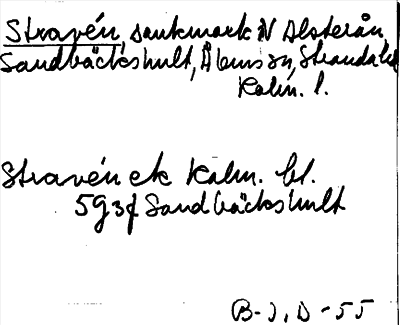 Stravén, sankmark N Alsterån,
Sandbäckshult, Åby sn, Stranda hd
Kalm. l.
Stravén ek Kalm. bl.
5g3f Sandbäckshult
B-J, D-55